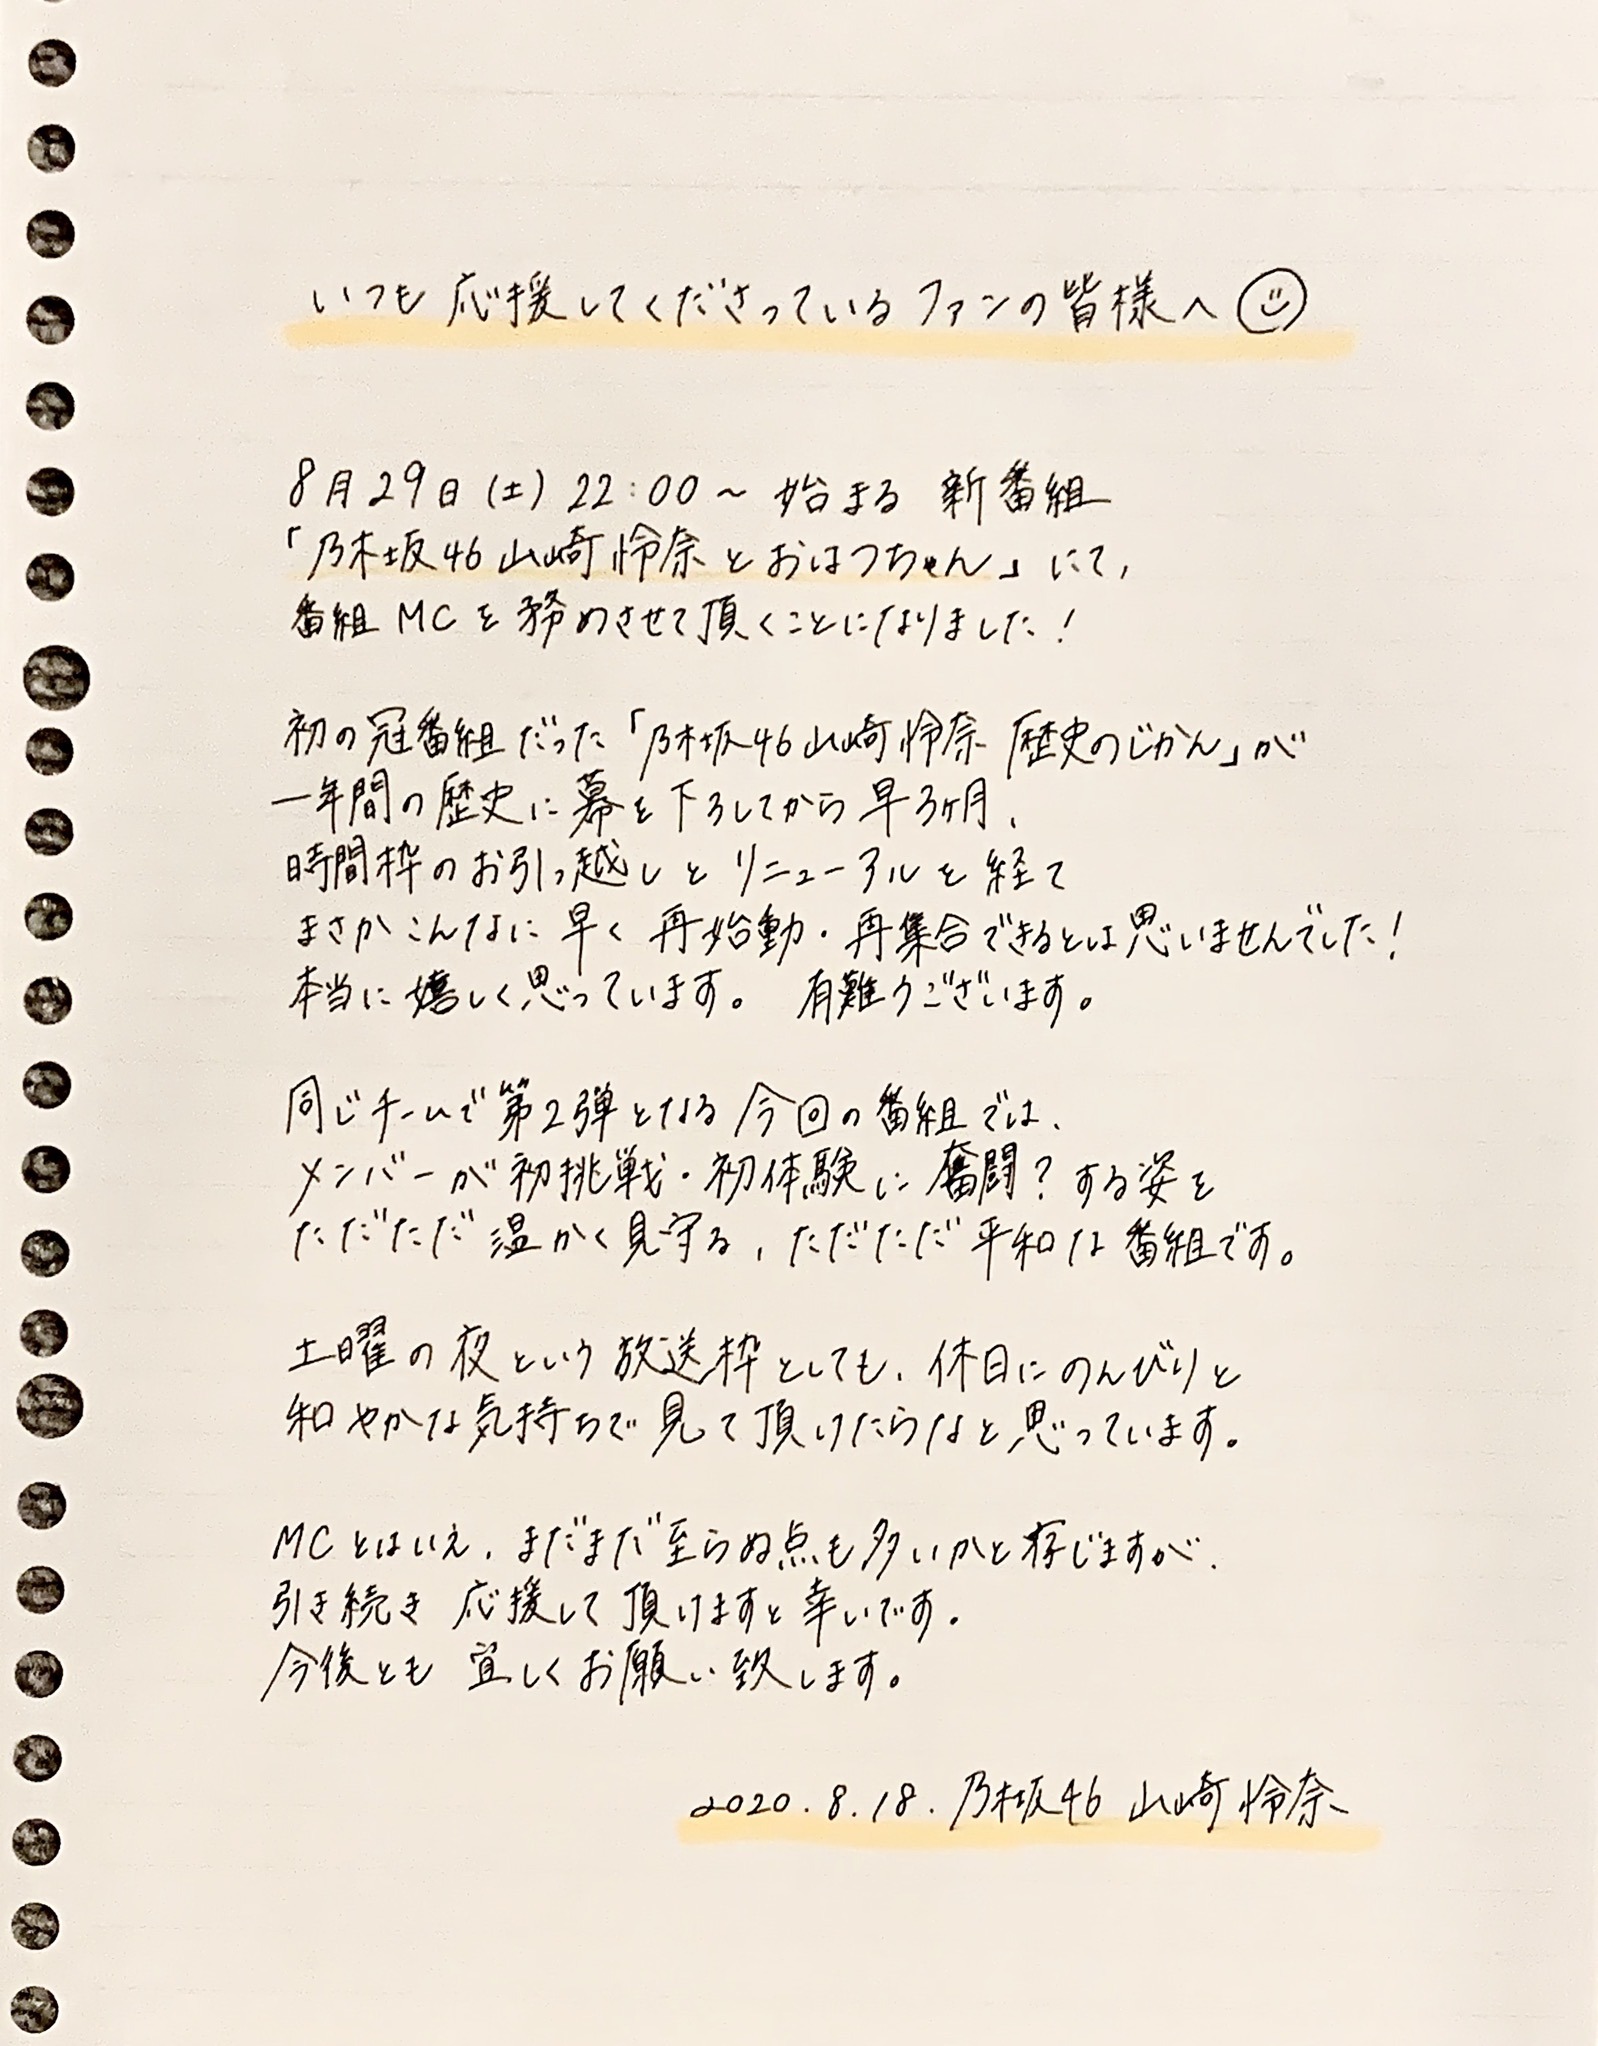 いつも応援してくださっているファンの皆様へ
8月29日(土)22:00~始まる 新番組
「乃木坂46山崎怜奈とおはつちゃん」にて,
番組MCを務めさせて頂くことになりました!
初の冠番組だった「乃木坂46山崎怜奈 歴史のじかん」が
一年間の歴史に幕を下ろしてから早3ヶ月、
時間枠のお引っ越しとリニューアルを経て
まさかこんなに早く再始動・再集合できるとは思いませんでした!
本当に嬉しく思っています。 有難うございます。
同じチームで第2弾となる今回の番組では、
メンバーが初挑戦・初体験に奮闘?する姿を
ただただ温かく見守る、ただただ平和な番組です。
土曜の夜という放送枠としても、休日にのんびりと
和やかな気持ちで見て頂けたらなと思っています。
MCとはいえ、まだまだ至らぬ点も多いかと存じますが、
引き続き応援して頂けますと幸いです。
今後とも宜しくお願い致します。
2020.8.18.乃木坂46 山崎怜奈